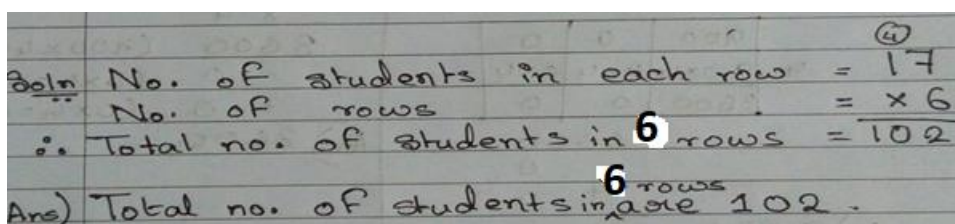 ④
Soln No. of students in each row = 17
No. of rows = × 6
∴ Total no. of students in 6 rows = 102
6 rows
Ans) Total no. of students in ^ are 102.